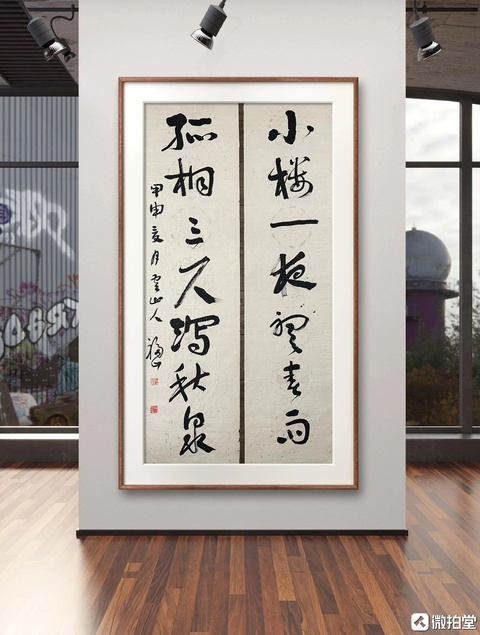 小楼一夜听春雨
孤桐三尺泻秋泉
甲申夏月雲山人
微拍堂